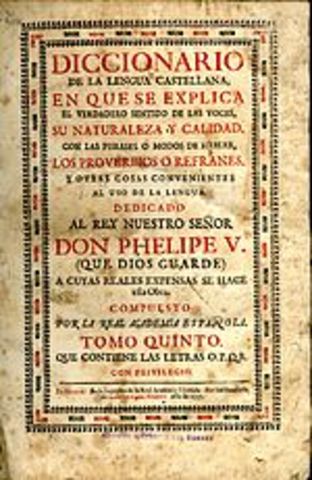 DICCIONARIO
DE LA LENGUA CASTELLANA,
EN QUE SE EXPLICA
EL VERDADERO SENTIDO DE LAS VOCES,
SU NATURALEZA Y CALIDAD,
CON LAS PHRASES O MODOS DE HABLAR,
LOS PROVERBIOS O REFRANES,
Y OTRAS COSAS CONVENIENTES
AL USO DE LA LENGUA.
DEDICADO
AL REY NUESTRO SEÑOR
DON PHELIPE V.
(QUE DIOS GUARDE)
A CUYAS REALES EXPENSAS SE HACE
esta Obra.
COMPUESTO
POR LA REAL ACADEMIA ESPAÑOLA.
TOMO QUINTO.
QUE CONTIENE LAS LETRAS O.P.Q.R.
CON PRIVILEGIO.